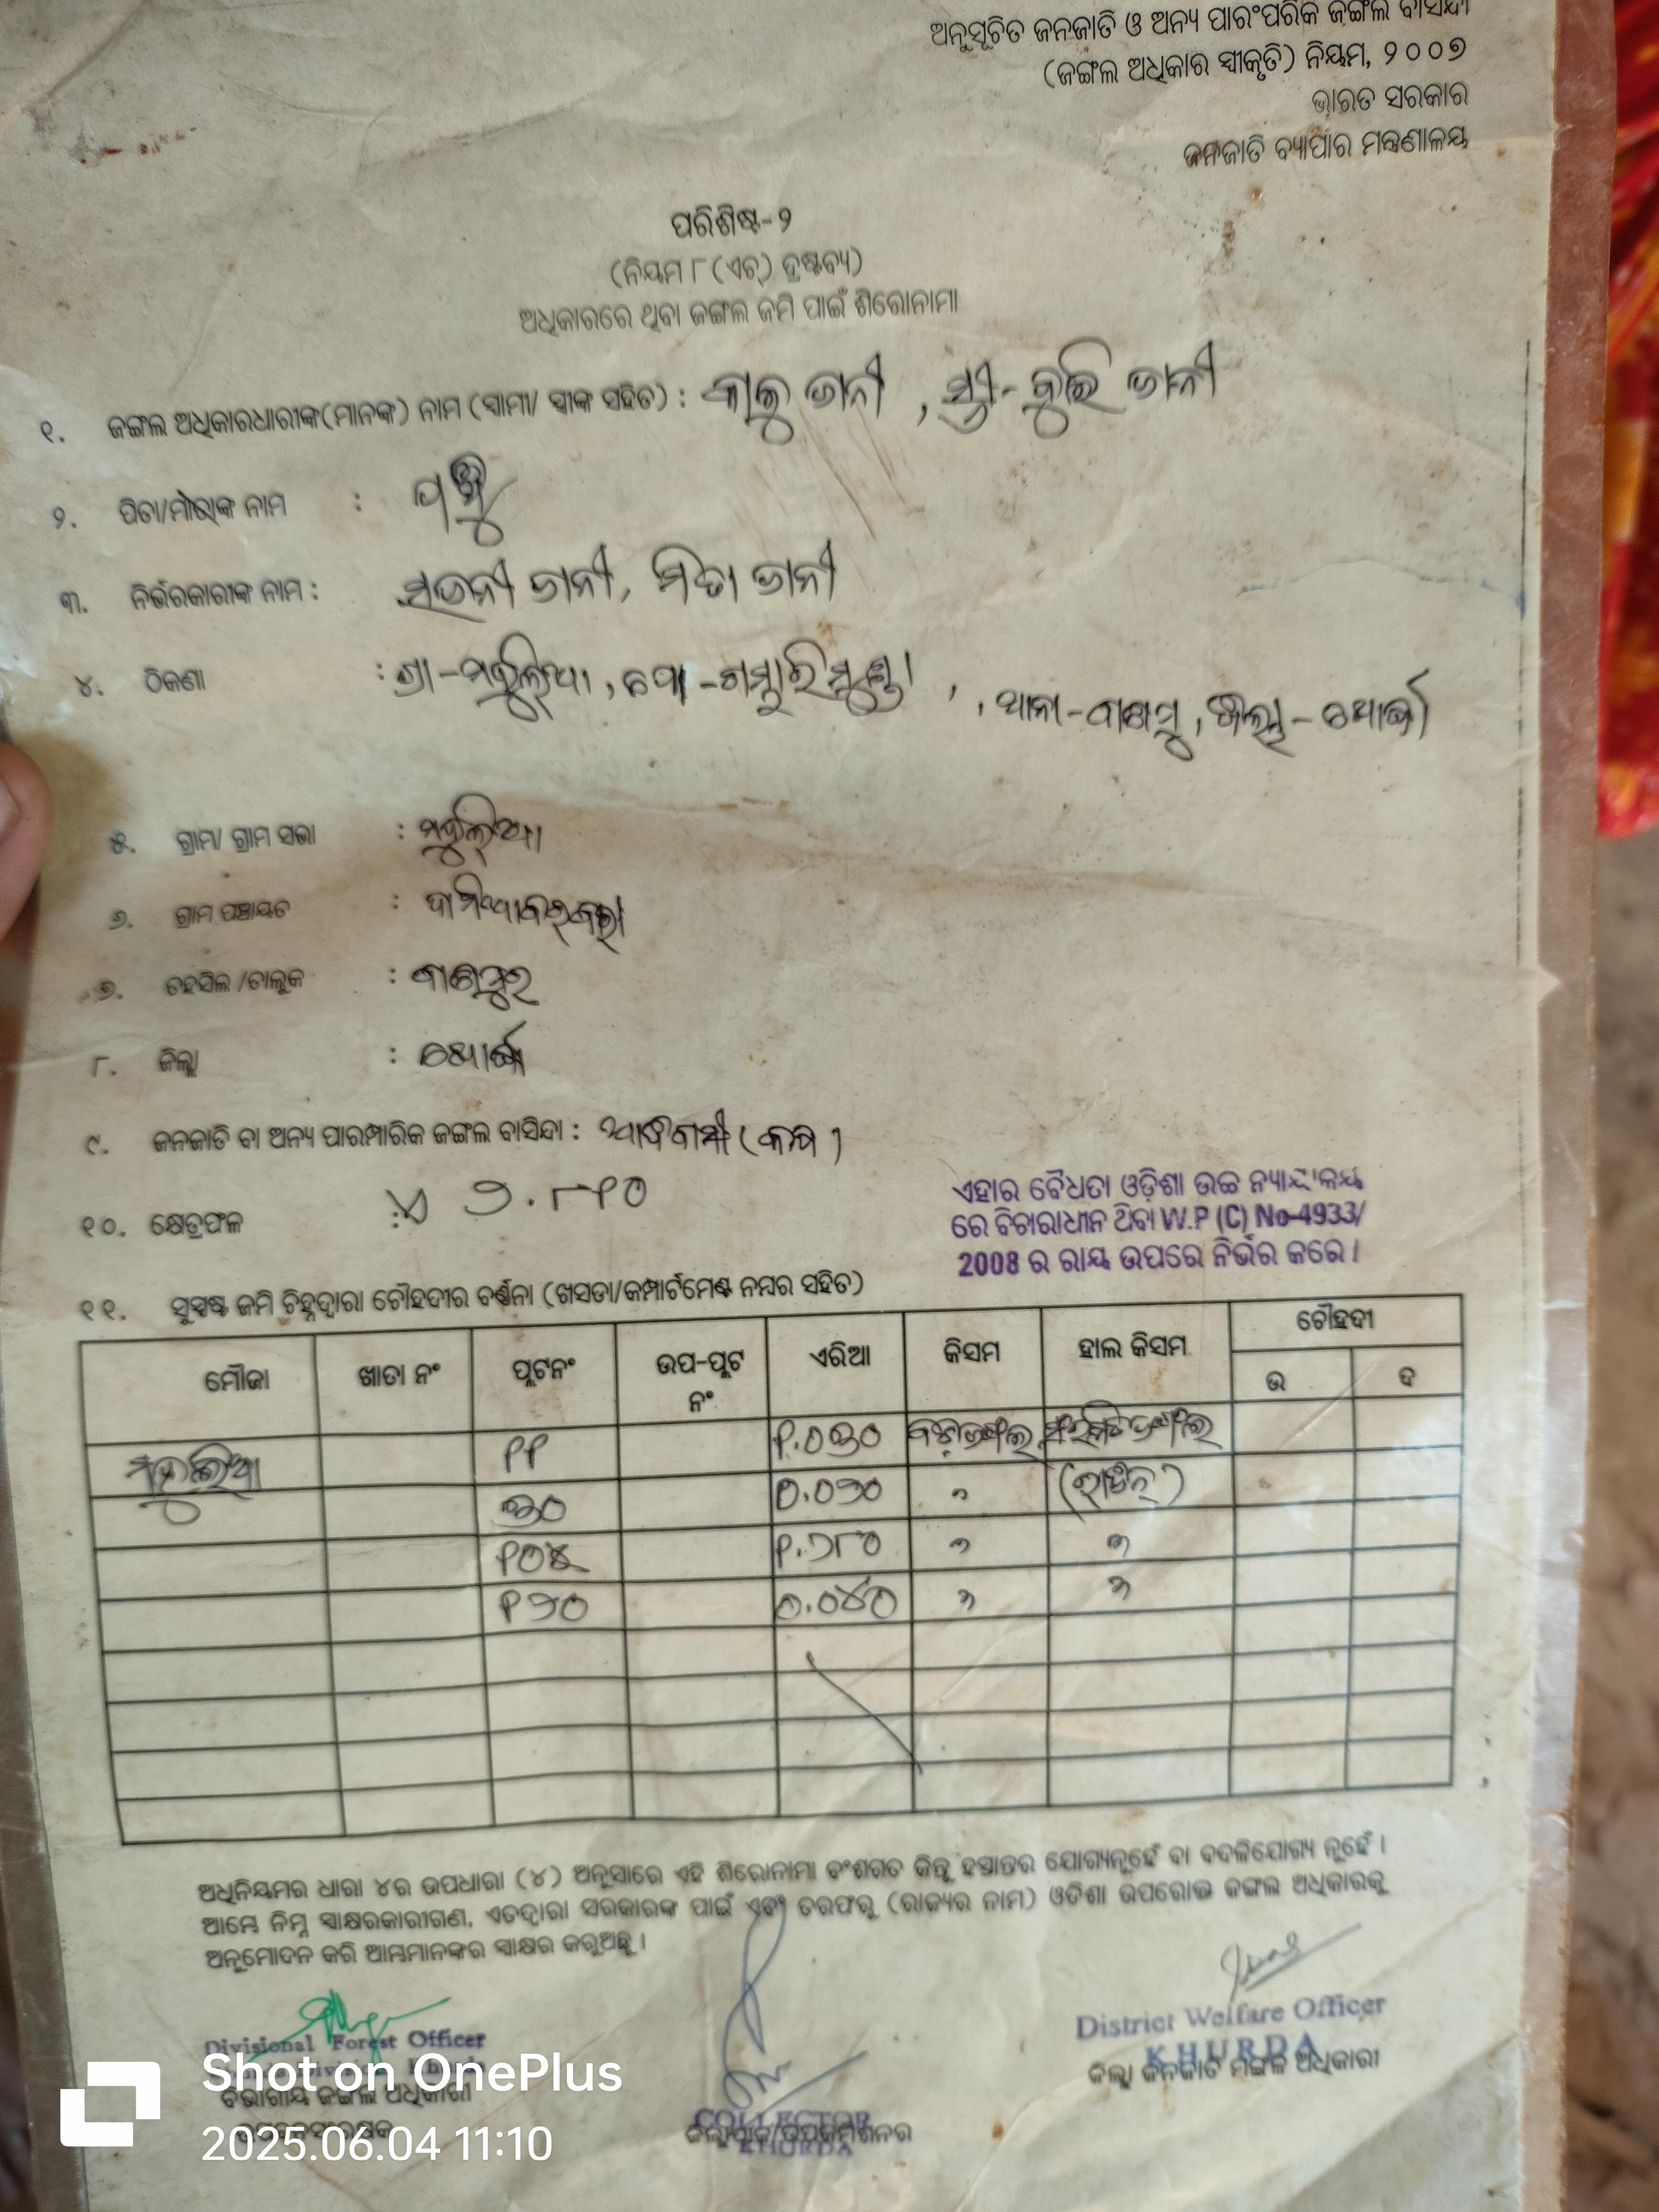 ଅନୁସୂଚିତ ଜନଜାତି ଓ ଅନ୍ୟ ପାରଂପରିକ ଜଙ୍ଗଲ ବାସିନ୍ଦା
(ଜଙ୍ଗଲ ଅଧିକାର ସ୍ୱୀକୃତି) ନିୟମ, ୨୦୦୭
ଭାରତ ସରକାର
ଜନଜାତି ବ୍ୟାପାର ମନ୍ତ୍ରଣାଳୟ
ପରିଶିଷ୍ଟ-୨
(ନିୟମ ୮(ଏଚ୍) ଦ୍ରଷ୍ଟବ୍ୟ)
ଅଧିକାରରେ ଥିବା ଜଙ୍ଗଲ ଜମି ପାଇଁ ଶିରୋନାମା
୧. ଜଙ୍ଗଲ ଅଧିକାରଧାରୀଙ୍କ(ମାନଙ୍କ) ନାମ (ସ୍ୱାମୀ/ ସ୍ତ୍ରୀଙ୍କ ସହିତ) : ଜାନୀ , ସ୍ତ୍ରୀ- ଜାନୀ
୨. ପିତା/ମାତାଙ୍କ ନାମ :
୩. ନିର୍ଭରକାରୀଙ୍କ ନାମ : ଜାନୀ, ମିତା ଜାନୀ
୪. ଠିକଣା : ଗ୍ରା- , ପୋ- , ଥାନା-ବାଣପୁର, ଜିଲ୍ଲା-ଖୋର୍ଦ୍ଧା
୫. ଗ୍ରାମ/ ଗ୍ରାମ ସଭା :
୬. ଗ୍ରାମ ପଞ୍ଚାୟତ :
୭. ତହସିଲ /ତାଲୁକ : ବାଣପୁର
୮. ଜିଲ୍ଲା : ଖୋର୍ଦ୍ଧା
୯. ଜନଜାତି ବା ଅନ୍ୟ ପାରମ୍ପାରିକ ଜଙ୍ଗଲ ବାସିନ୍ଦା : ଆଦିବାସୀ (କନ୍ଧ)
୧୦. କ୍ଷେତ୍ରଫଳ : ୨.୮୧୦
ଏହାର ବୈଧତା ଓଡ଼ିଶା ଉଚ୍ଚ ନ୍ୟାୟାଳୟ
ରେ ବିଚାରାଧୀନ ଥିବା W.P (C) No-4933/
2008 ର ରାୟ ଉପରେ ନିର୍ଭର କରେ ।
୧୧. ସୁସ୍ପଷ୍ଟ ଜମି ଚିହ୍ନଦ୍ୱାରା ଚୌହଦୀର ବର୍ଣ୍ଣନା (ଖସଡା/କମ୍ପାର୍ଟମେଣ୍ଟ ନମ୍ବର ସହିତ)
ମୌଜା ଖାତା ନଂ ପ୍ଲଟନଂ ଉପ-ପ୍ଲଟ ନଂ ଏରିଆ କିସମ ହାଲ କିସମ ଚୌହଦୀ
ଉ ଦ
୧୧ ୧.୦୩୦
୩୦ ୦.୦୨୦ "
୧୦୪ ୧.୨୮୦ " "
୧୨୦ ୦.୦୪୦ " "
ଅଧିନିୟମର ଧାରା ୪ର ଉପଧାରା (୪) ଅନୁସାରେ ଏହି ଶିରୋନାମା ବଂଶଗତ କିନ୍ତୁ ହସ୍ତାନ୍ତର ଯୋଗ୍ୟନୁହେଁ ବା ବଦଳିଯୋଗ୍ୟ ନୁହେଁ ।
ଆମ୍ଭେ ନିମ୍ନ ସ୍ୱାକ୍ଷରକାରୀଗଣ, ଏତଦ୍ୱାରା ସରକାରଙ୍କ ପାଇଁ ଏବଂ ତରଫରୁ (ରାଜ୍ୟର ନାମ) ଓଡିଶା ଉପରୋକ୍ତ ଜଙ୍ଗଲ ଅଧିକାରକୁ
ଅନୁମୋଦନ କରି ଆମ୍ଭମାନଙ୍କର ସ୍ୱାକ୍ଷର କରୁଅଛୁ ।
Divisional Forest Officer
ବିଭାଗୀୟ ଜଙ୍ଗଲ ଅଧିକାରୀ
COLLECTOR
KHURDA
ଜିଲ୍ଲାପାଳ/ଉପକମିଶନର
District Welfare Officer
KHURDA
ଜିଲ୍ଲା ଜନଜାତି ମଙ୍ଗଳ ଅଧିକାରୀ
Shot on OnePlus
2025.06.04 11:10